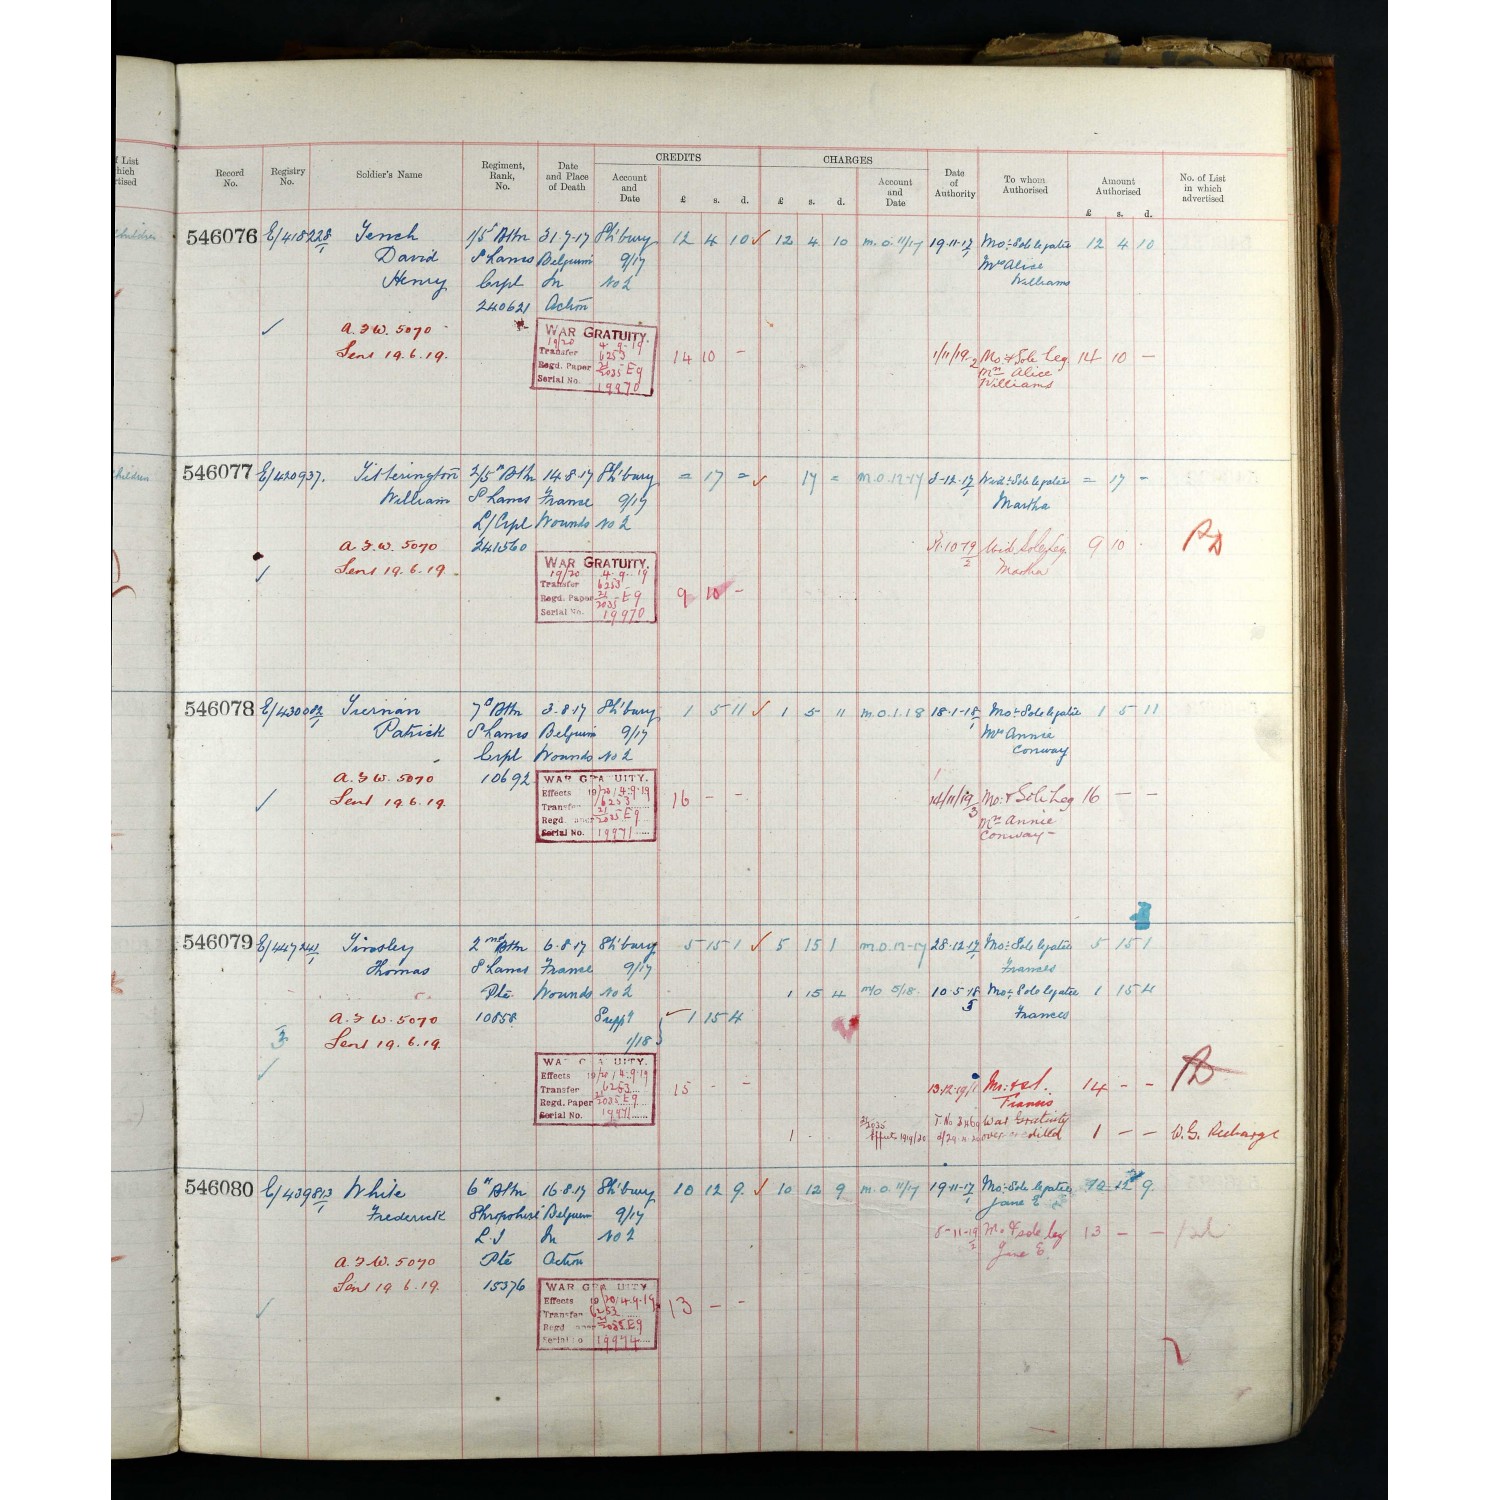 f List
hich
rtised
Record
No.
Registry
No.
Soldier's Name
Regiment,
Rank,
No.
Date
and Place
of Death
CREDITS
Account
and
Date
£ s. d.
CHARGES
£ s. d.
Account
and
Date
Date
of
Authority
To whom
Authorised
Amount
Authorised
£ s. d.
No. of List
in which
advertised
546076 E/418228/1 Tench 1/5th Bttn 31-7-17 Sh'bury 12 4 10 12 4 10 m.o. 11/17 19-11-17/1 Mo: Sole legatee 12 4 10
David S Lancs Belgium 9/17 Mrs Alice
Henry Corpl In No 2 Williams
240621 Action
A.F.W. 5070
Sent 19.6.19.
WAR GRATUITY.
19/20 4-9-19
Transfer 6253
Regd. Paper 21/2035 E9
Serial No. 19970
14 10 - 1/11/19 2 Mo: & Sole Leg 14 10 -
Mrs Alice
Williams
546077 E/420937. Titherington 2/5th Bttn 14-8-17 Sh'bury = 17 = 17 = m.o. 12-17 3-12-17/1 Wid: Sole legatee = 17 -
William S Lancs France 9/17 Martha
L/Crpl Wounds No 2
A.F.W. 5070 241560
Sent 19.6.19.
WAR GRATUITY.
19/20 4-9-19
Transfer 6253
Regd. Paper 21/2035 E9
Serial No. 19970
9 10 -
31-10-19/2 Wid: Sole Leg 9 10 -
Martha
546078 E/430082/1 Tiernan 7th Bttn 3-8-17 Sh'bury 1 5 11 1 5 11 m.o. 1.18 18-1-18/1 Mo: Sole legatee 1 5 11
Patrick S Lancs Belgium 9/17 Mrs Annie
Corpl Wounds No 2 Conway
A.F.W. 5070 10692
Sent 19.6.19.
WAR GRATUITY.
Effects 19/20 4-9-19
Transfer 6253
Regd. Paper 21/2035 E9
Serial No. 19971
16 - - 14/11/19/3 Mo: & Sole Leg 16 - -
Mrs Annie
Conway -
546079 E/447241/1 Tinsley 2nd Bttn 6-8-17 Sh'bury 5 15 1 5 15 1 m.o. 12-17 28-12-17/1 Mo: Sole legatee 5 15 1
Thomas S Lancs France 9/17 Frances
Pte Wounds No 2 1 15 4 m/o 5/18. 10-5-18/3 Mo: Sole legatee 1 15 4
A.F.W. 5070 10858 Suppy 1 15 4 Frances
Sent 19.6.19. 1/18
3
WAR GRATUITY.
Effects 19/20 4-9-19
Transfer 6253
Regd. Paper 21/2035 E9
Serial No. 19971
15 - - 13-12-19/1 Mo: & s.l. 14 - -
Francis
1 21/2035 Effects 1919/20 War Gratuity
over credited 1 - - W.G. Recharge
546080 E/439813/1 White 6th Bttn 16-8-17 Sh'bury 10 12 9 10 12 9 m.o. 11/17 19-11-17/1 Mo: Sole legatee 10 12 9
Frederick Shropshire Belgium 9/17 Jane E
L.I In No 2
Pte Action
15376
A.F.W. 5070
Sent 19.6.19.
8-11-19/2 Mo: & sole leg 13 - -
Jane E.
WAR GRATUITY.
Effects 19/20 4-9-19
Transfer 6253
Regd. Paper 21/2035 E9
Serial No. 19974
13 - -